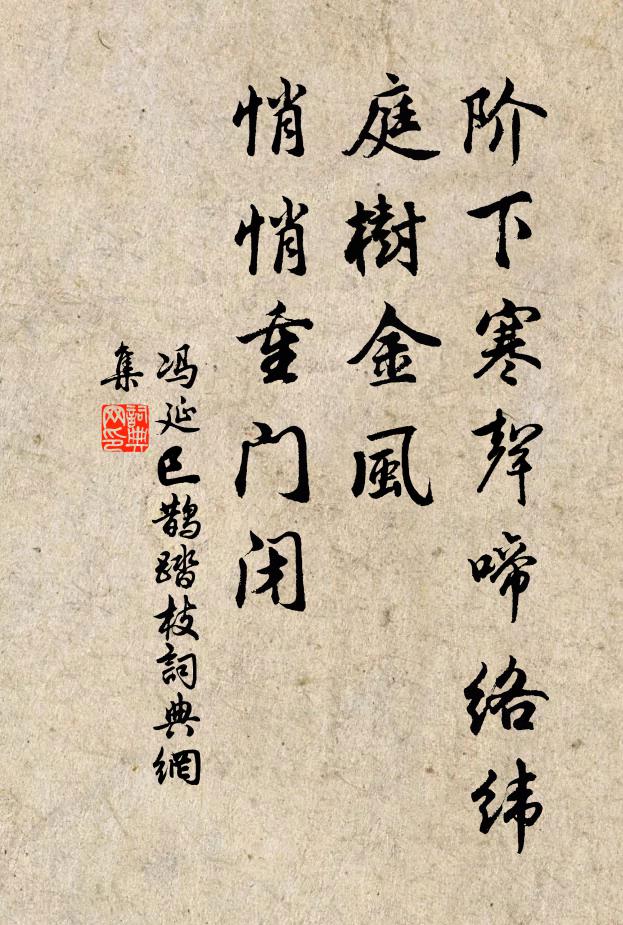 阶下寒聲啼络纬
庭樹金風
悄悄重门闭
冯延巳鹊踏枝詞典網
集
詞典網印